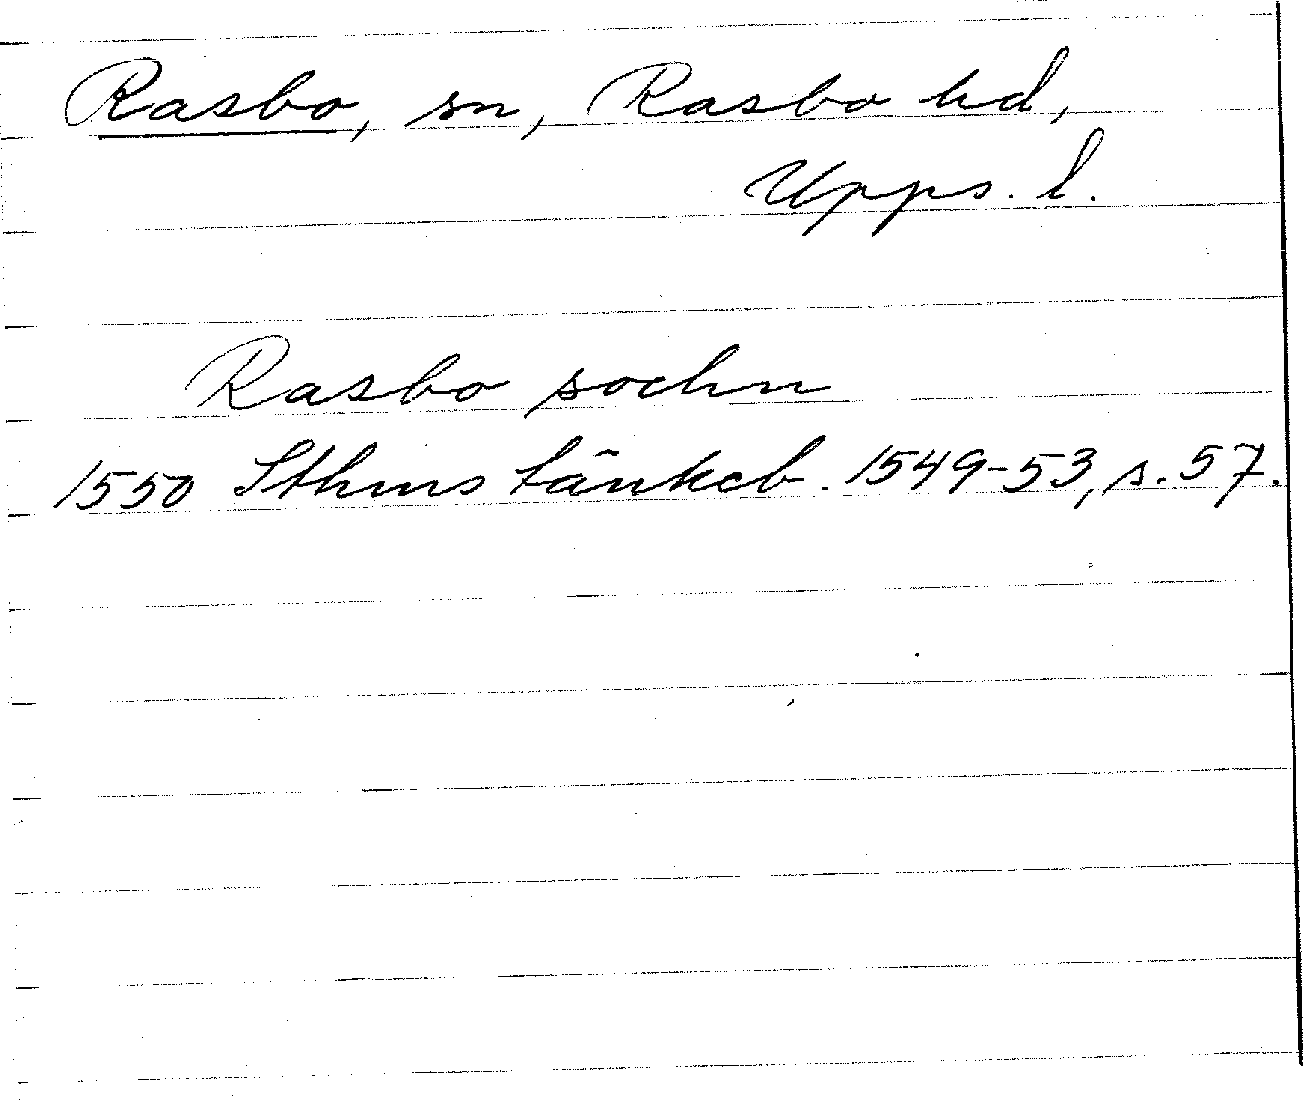 Rasbo, sn, Rasbo hd,
Upps. l.
Rasbo sochn
1550 Sthms tänkeb. 1549-53, s. 57.